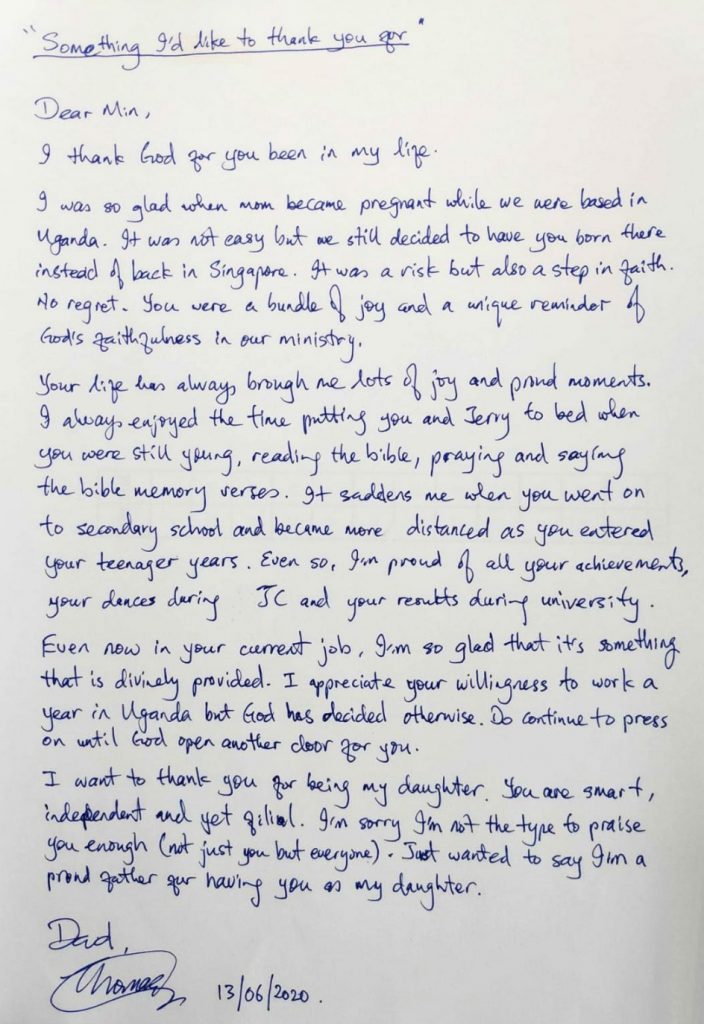 "Something I'd like to thank you for"
Dear Min,
I thank God for you been in my life.
I was so glad when mom became pregnant while we were based in
Uganda. It was not easy but we still decided to have you born there
instead of back in Singapore. It was a risk but also a step in faith.
No regret. You were a bundle of joy and a unique reminder of
God's faithfulness in our ministry.
Your life has always brough me lots of joy and proud moments.
I always enjoyed the time putting you and Jerry to bed when
you were still young, reading the bible, praying and saying
the bible memory verses. It saddens me when you went on
to secondary school and became more distanced as you entered
your teenager years. Even so, I'm proud of all your achievements,
your dances during JC and your results during university.
Even now in your current job, I'm so glad that it's something
that is divinely provided. I appreciate your willingness to work a
year in Uganda but God has decided otherwise. Do continue to press
on until God open another door for you.
I want to thank you for being my daughter. You are smart,
independent and yet filial. I'm sorry I'm not the type to praise
you enough (not just you but everyone). Just wanted to say I'm a
proud father for having you as my daughter.
Dad,
Thomas
13/06/2020.